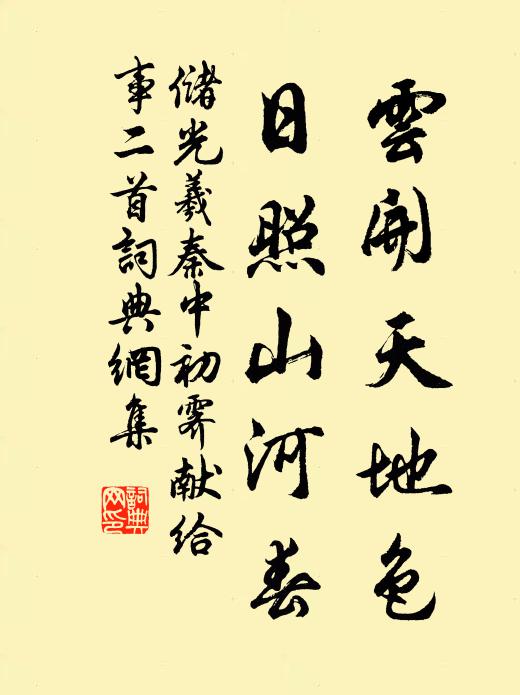 雲開天地色
日照山河春
儲光羲秦中初霽献给
事二首詞典網集
詞典網印